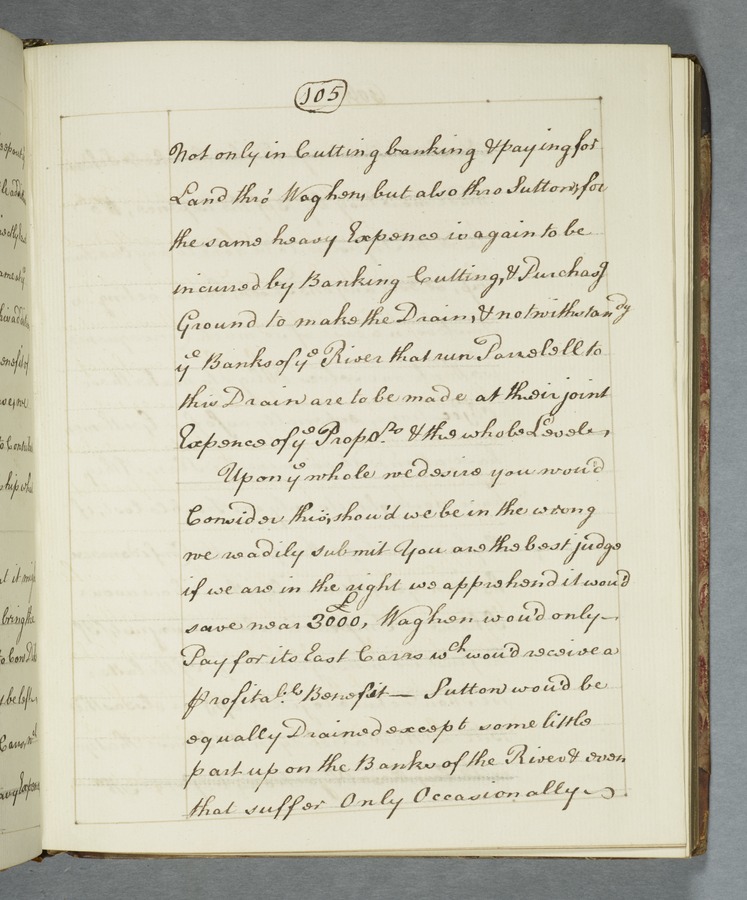 105
Not only in Cutting banking & paying for
Land thro' Waghen, but also thro Sutton, for
the same heavy Expence is again to be
incurred by Banking Cutting, & Purchasg
Ground to make the Drain, & notwithstandg
ye Banks of ye River that run Parrelell to
this Drain are to be made at their joint
Expence of ye Propors & the whole Levels,
Upon ye whole we desire you wou'd
Consider this, shou'd we be in the wrong
we readily submit You are the best judge
if we are in the right we apprehend it wou'd
save near £3000, Waghen wou'd only
Pay for its East Carrs wch wou'd receive a
Profitabl.e Benefit — Sutton wou'd be
equally Drained except some little
part up on the Banks of the River & even
that suffer Only Occasionally